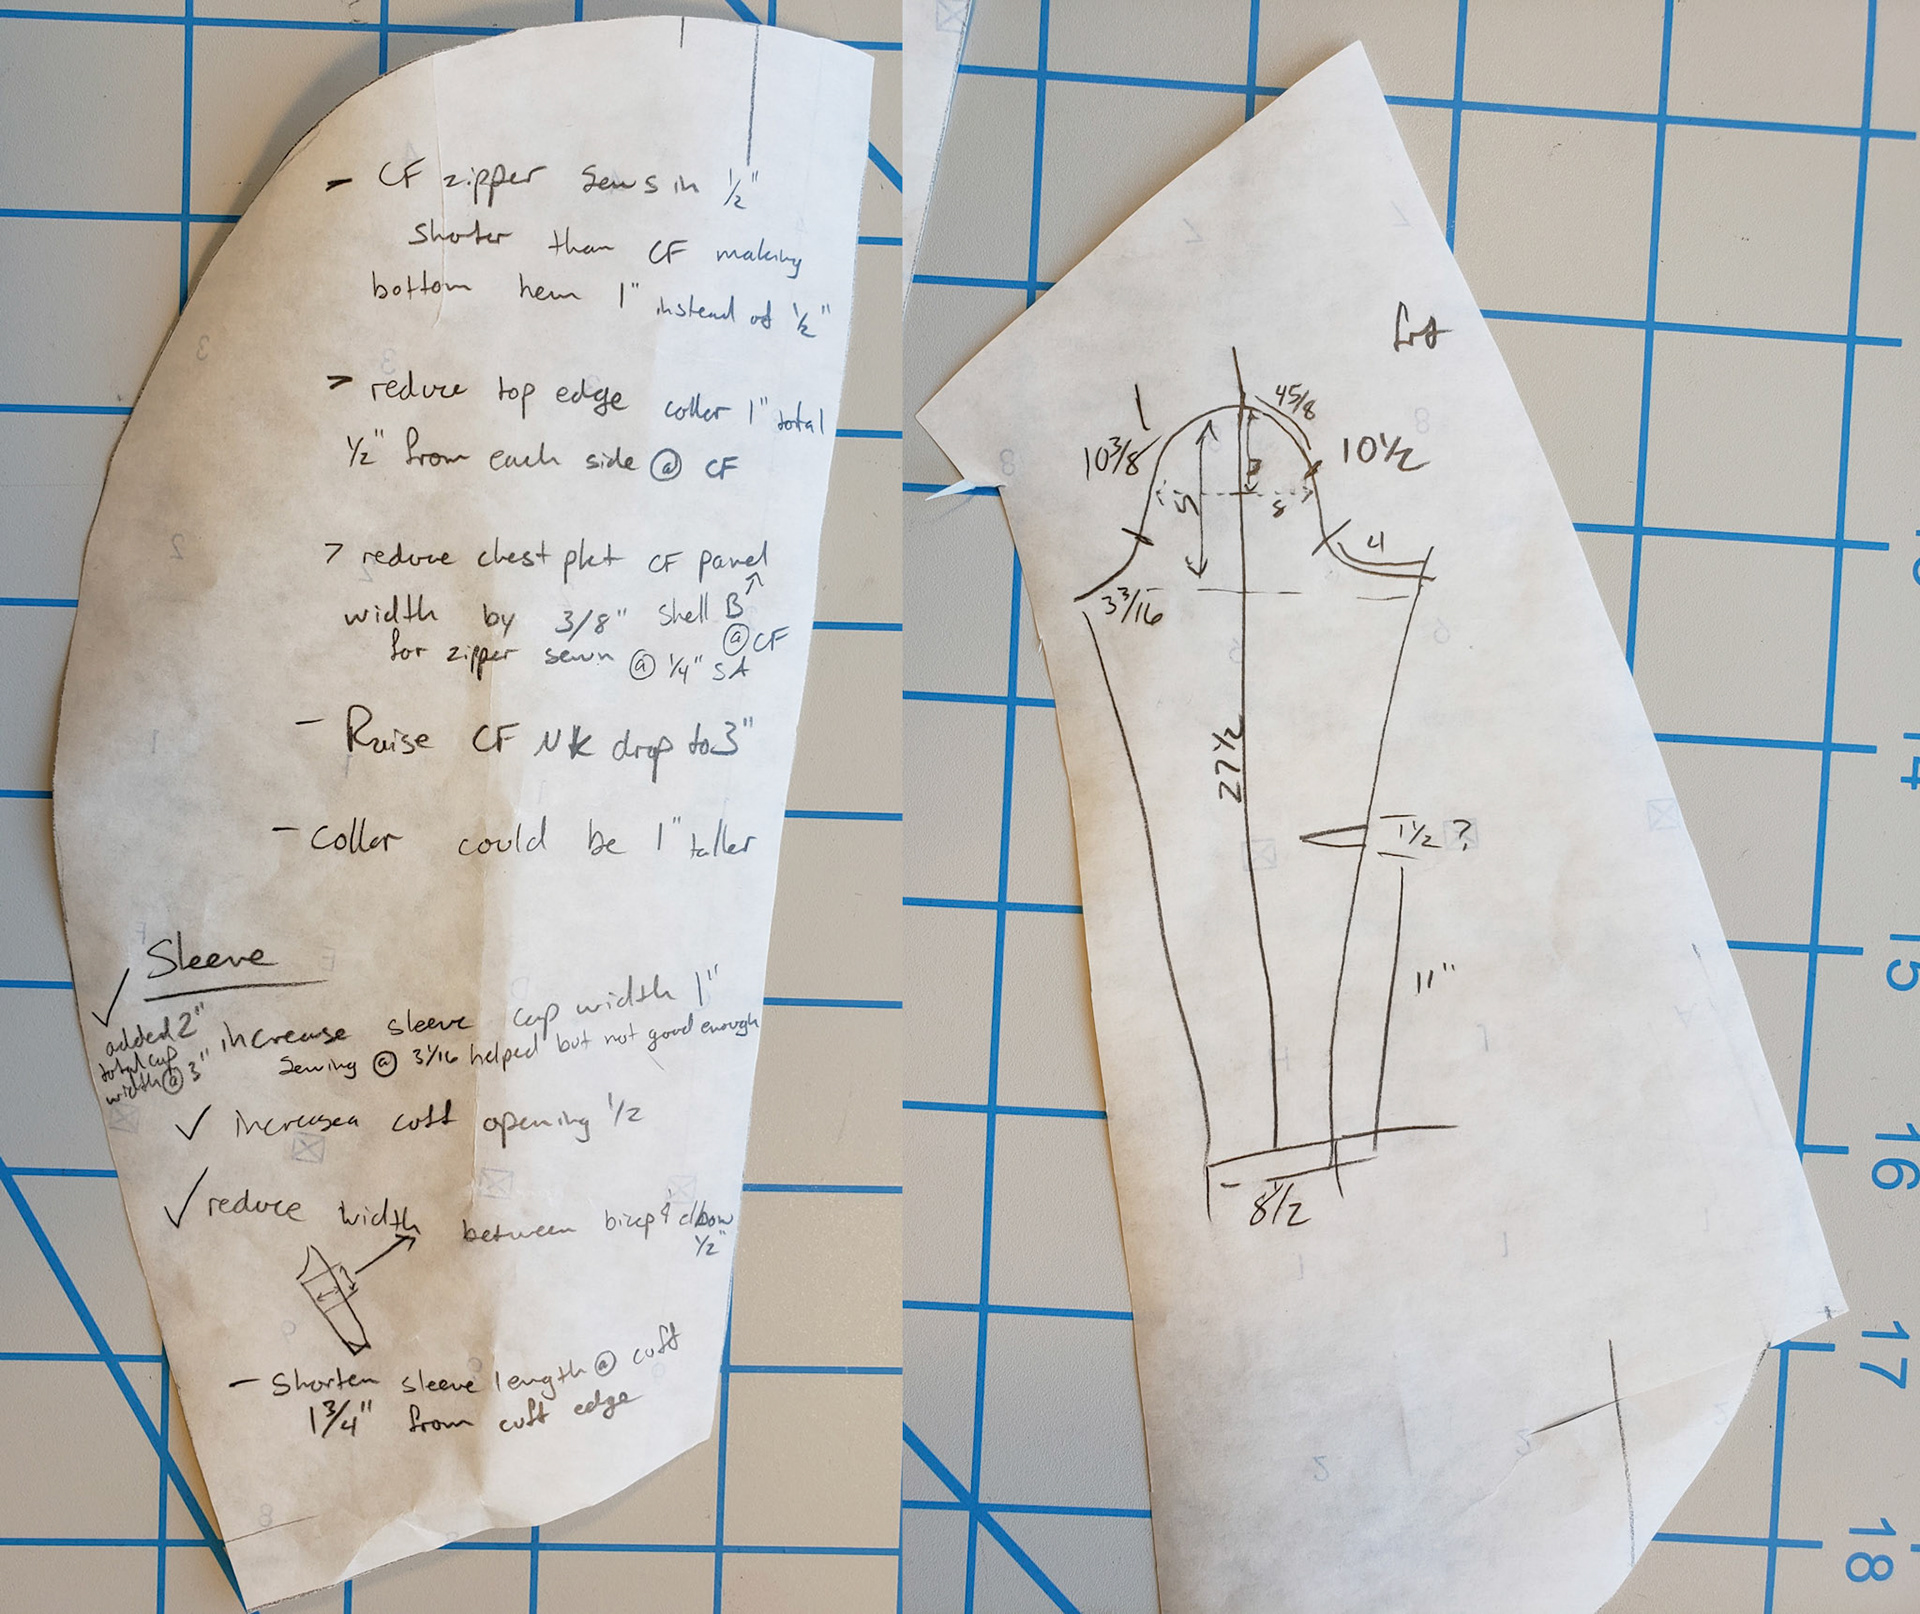 - CF zipper sews in 1/2"
shorter than CF making
bottom hem 1" instead of 1/2"
> reduce top edge collar 1" total
1/2" from each side @ CF
> reduce chest pkt CF panel
width by 3/8" shell B
@ CF
for zipper sewn @ 1/4" SA
- Raise CF NK drop to 3"
- collar could be 1" taller
Sleeve
✓ increase sleeve cap width 1"
added 2"
total cap
width @ 3"
Sewing @ 3 1/16 helped but not good enough
✓ increase cuff opening 1/2
✓ reduce width between bicep & elbow
1/2"
- Shorten sleeve length @ cuff
1 3/4" from cuff edge
frt
4 5/8
10 3/8
10 1/2
3
5
8
4
3 3/16
27 1/2
1 1/2 ?
11"
8 1/2
14
15
16
17
18